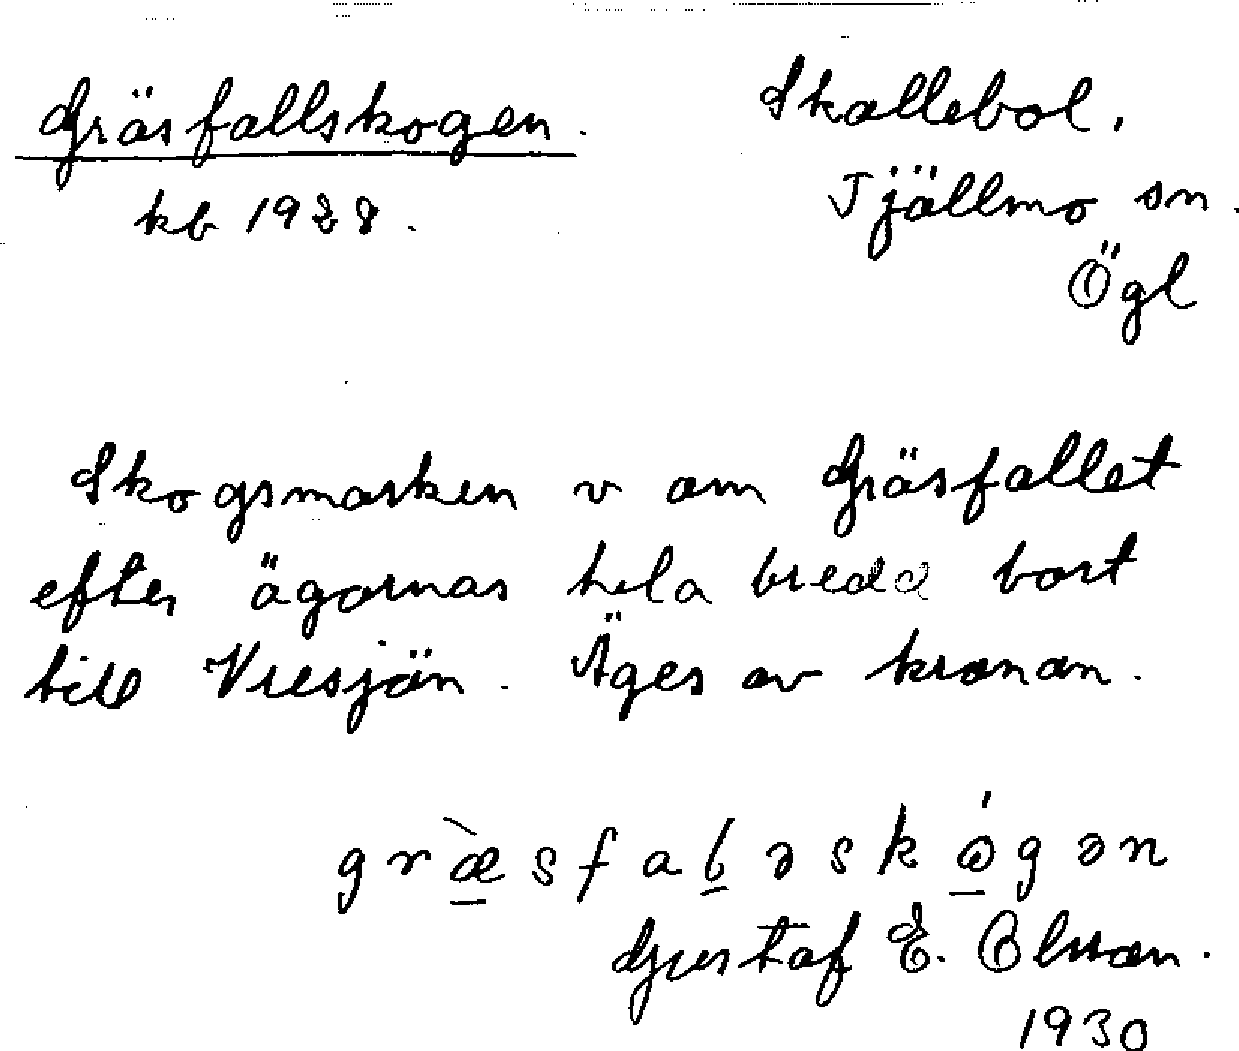 Gräsfallskogen.
kb 1928.
Skallebol,
Tjällmo sn.
Ögl
Skogsmarken v om Gräsfallet
efter ägornas hela bredd bort
till Vresjön. Äges av kronan.
græ̀sfaɫəskǿgən
Gustaf E. Olsson.
1930